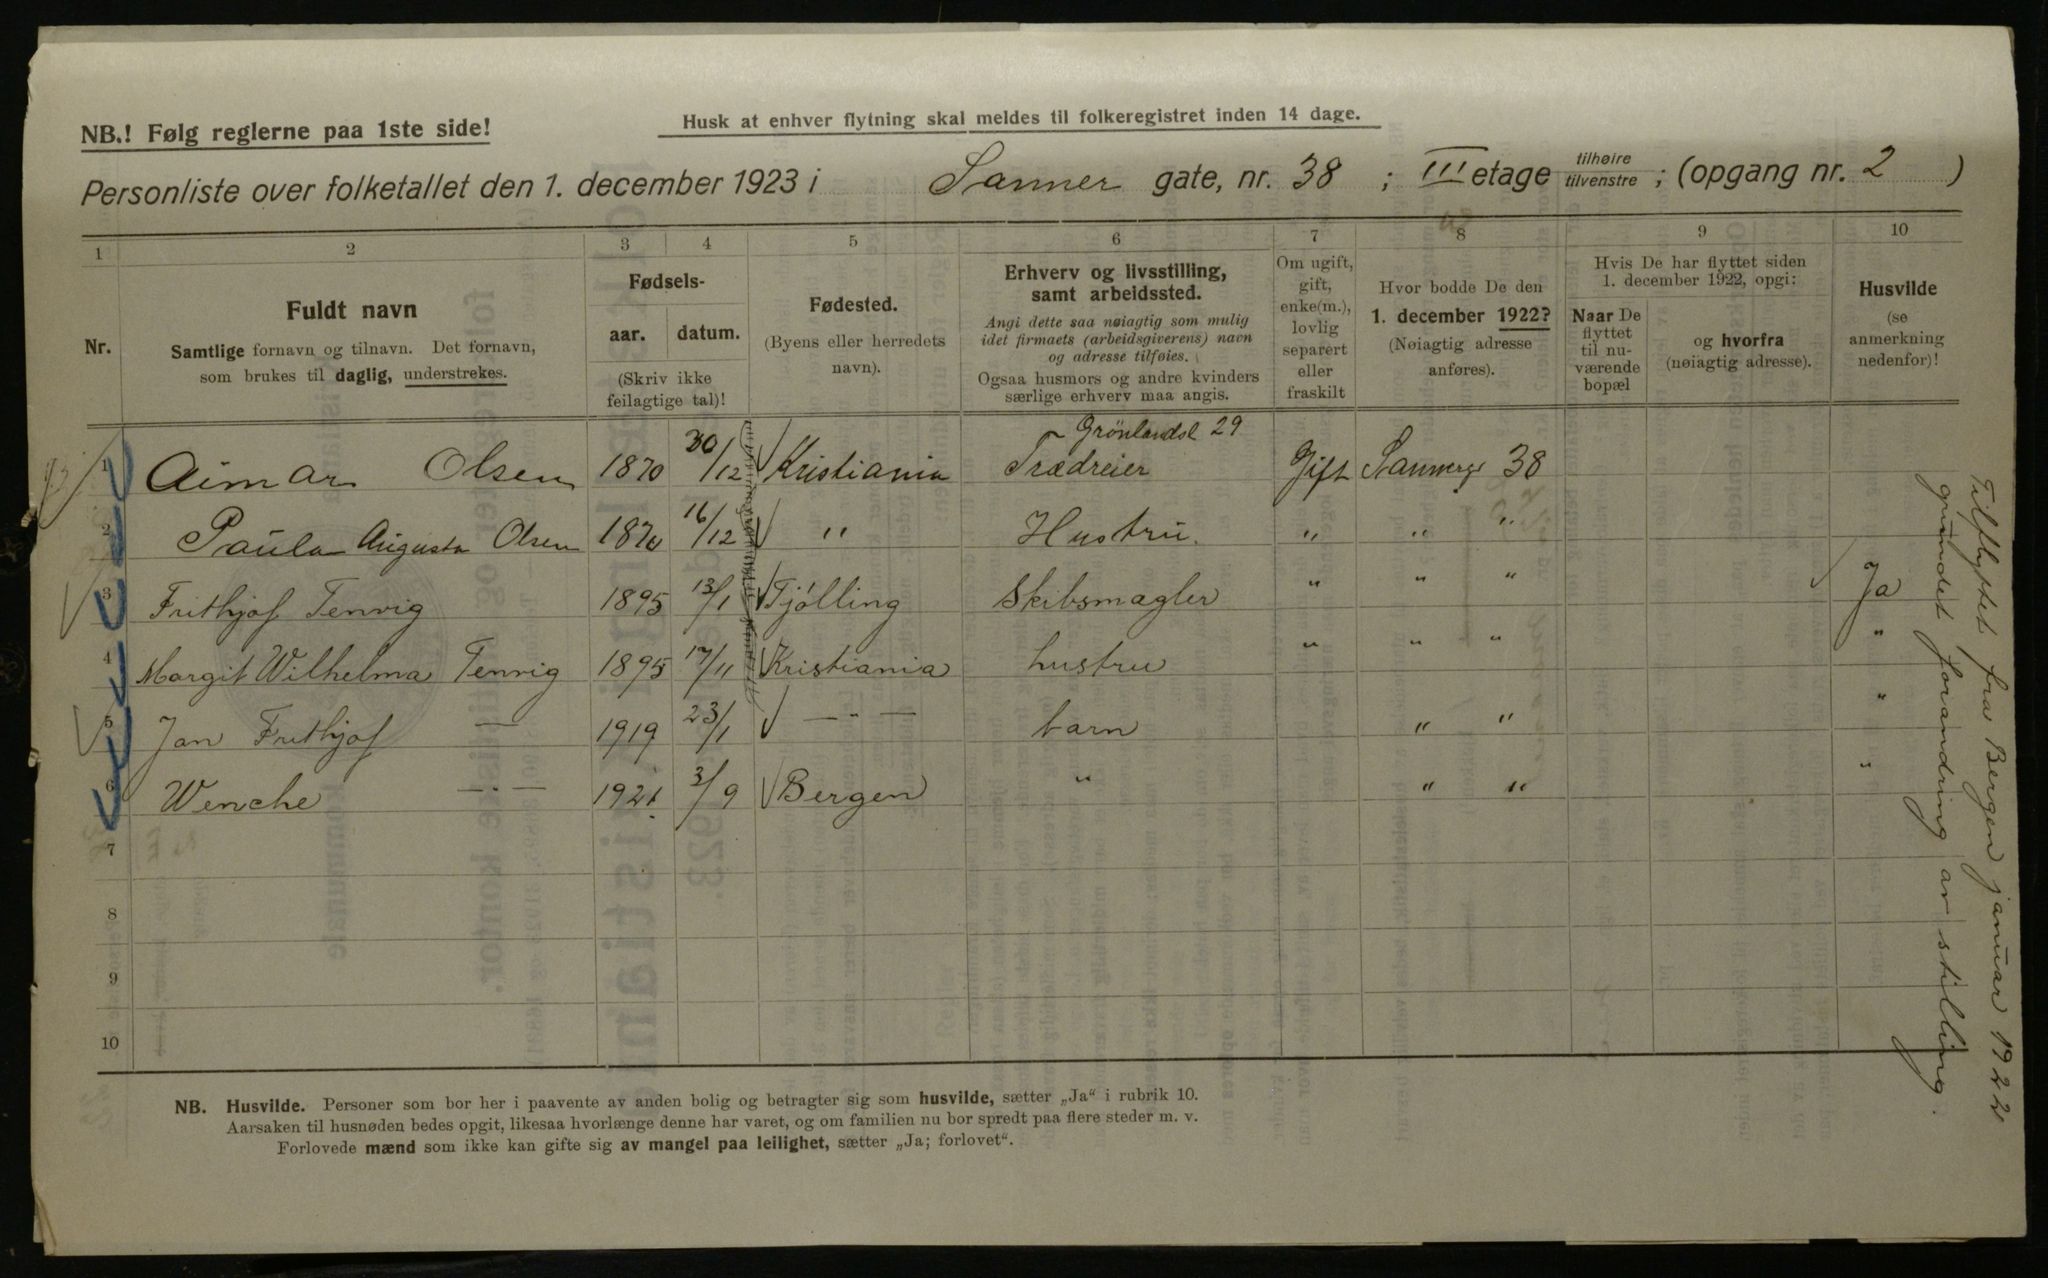 NB.! Følg reglerne paa 1ste side!
Husk at enhver flytning skal meldes til folkeregistret inden 14 dage.
Personliste over folketallet den 1. december 1923 i Sanner gate, nr. 38 ; III etage tilhøire tilvenstre ; (opgang nr. 2 )
1 2 3 4 5 6 7 8 9 10
Nr.
Fuldt navn
Samtlige fornavn og tilnavn. Det fornavn,
som brukes til daglig, understrekes.
Fødsels-
aar. datum.
(Skriv ikke
feilagtige tal)!
Fødested.
(Byens eller herredets
navn).
Erhverv og livsstilling,
samt arbeidssted.
Angi dette saa nøiagtig som mulig
idet firmaets (arbeidsgiverens) navn
og adresse tilføies.
Ogsaa husmors og andre kvinders
særlige erhverv maa angis.
Om ugift,
gift,
enke(m.),
lovlig
separert
eller
fraskilt
Hvor bodde De den
1. december 1922?
(Nøiagtig adresse
anføres).
Hvis De har flyttet siden
1. december 1922, opgi:
Naar De
flyttet
til nu-
værende
bopæl
og hvorfra
(nøiagtig adresse).
Husvilde
(se
anmerkning
nedenfor)!
Grönlandsl 29
1 Aimar Olsen 1870 30/12 Kristiania Trædreier Gift Sannergt 38
2 Paula Augusta Olsen 1870 16/12 " Hustru. " " "
3 Frithjof Tenvig 1895 13/1 Tjölling Skibsmægler " " " Ja
4 Margit Wilhelma Tenvig 1895 17/11 Kristiania hustru " " " "
5 Jan Frithjof — 1919 23/1 — " — barn " " "
6 Wenche — " — 1921 3/9 Bergen " " " "
7
8
9
10
Tilflyttet fra Bergen januar 1922
grundet forandring av stilling.
NB. Husvilde. Personer som bor her i paavente av anden bolig og betragter sig som husvilde, sætter „Ja“ i rubrik 10.
Aarsaken til husnøden bedes opgit, likesaa hvorlænge denne har varet, og om familien nu bor spredt paa flere steder m. v.
Forlovede mænd som ikke kan gifte sig av mangel paa leilighet, sætter „Ja; forlovet“.